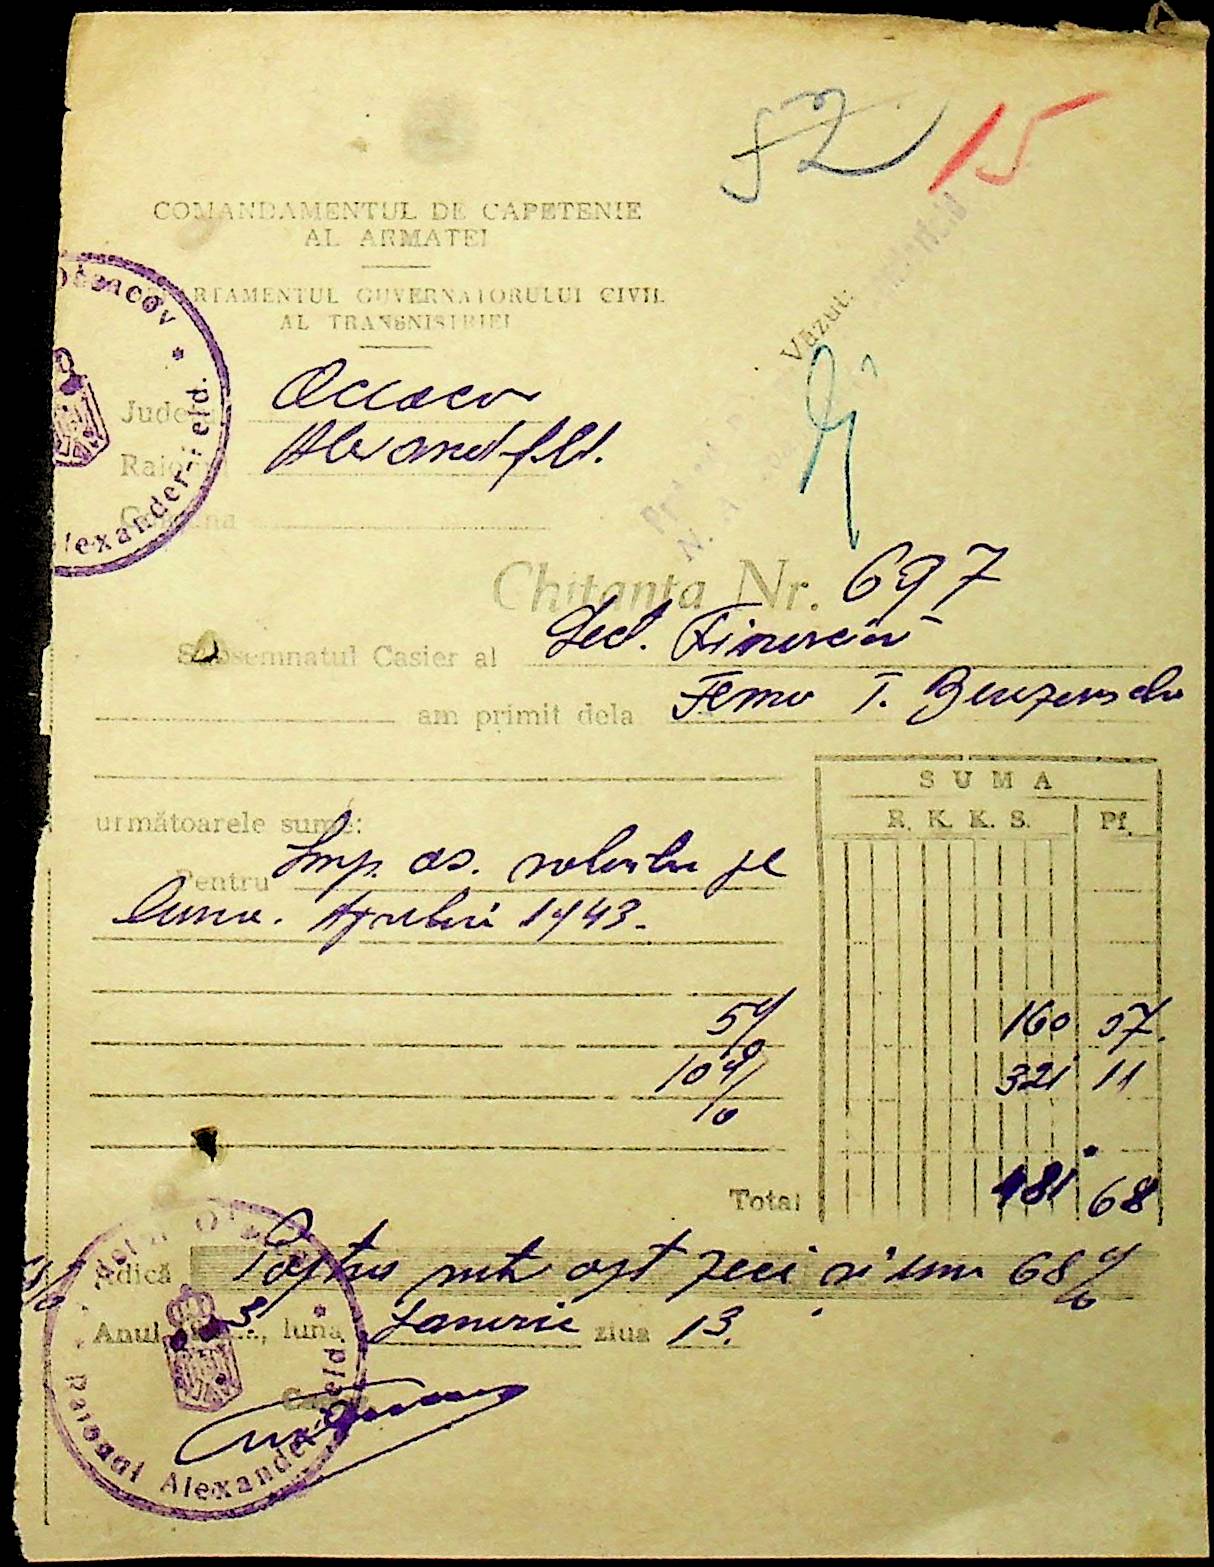 52 15
COMANDAMENTUL DE CAPETENIE
AL ARMATEI
ARTAMENTUL GUVERNATORULUI CIVIL
AL TRANSNISTRIEI
Văzut:
Oceacov *
Alexander-feld.
Județul Oceacov
Raionul Alexandfeld.
Comuna
Chitanța Nr. 697
Subsemnatul Casier al Sect. Financiar
am primit dela Ferma T. Berezovschi
SUMA
R. K. K. S. Pf.
următoarele sume:
Pentru Imp. as. salariilor pe
luna. Aprilie 1943.
5% 160 57.
10% 321 11
Total 481 68
Adică Patru sute opt zeci si unu 68 %
Anul 3..., luna Ianuarie ziua 13.
Casier
Raionul Alexander-feld